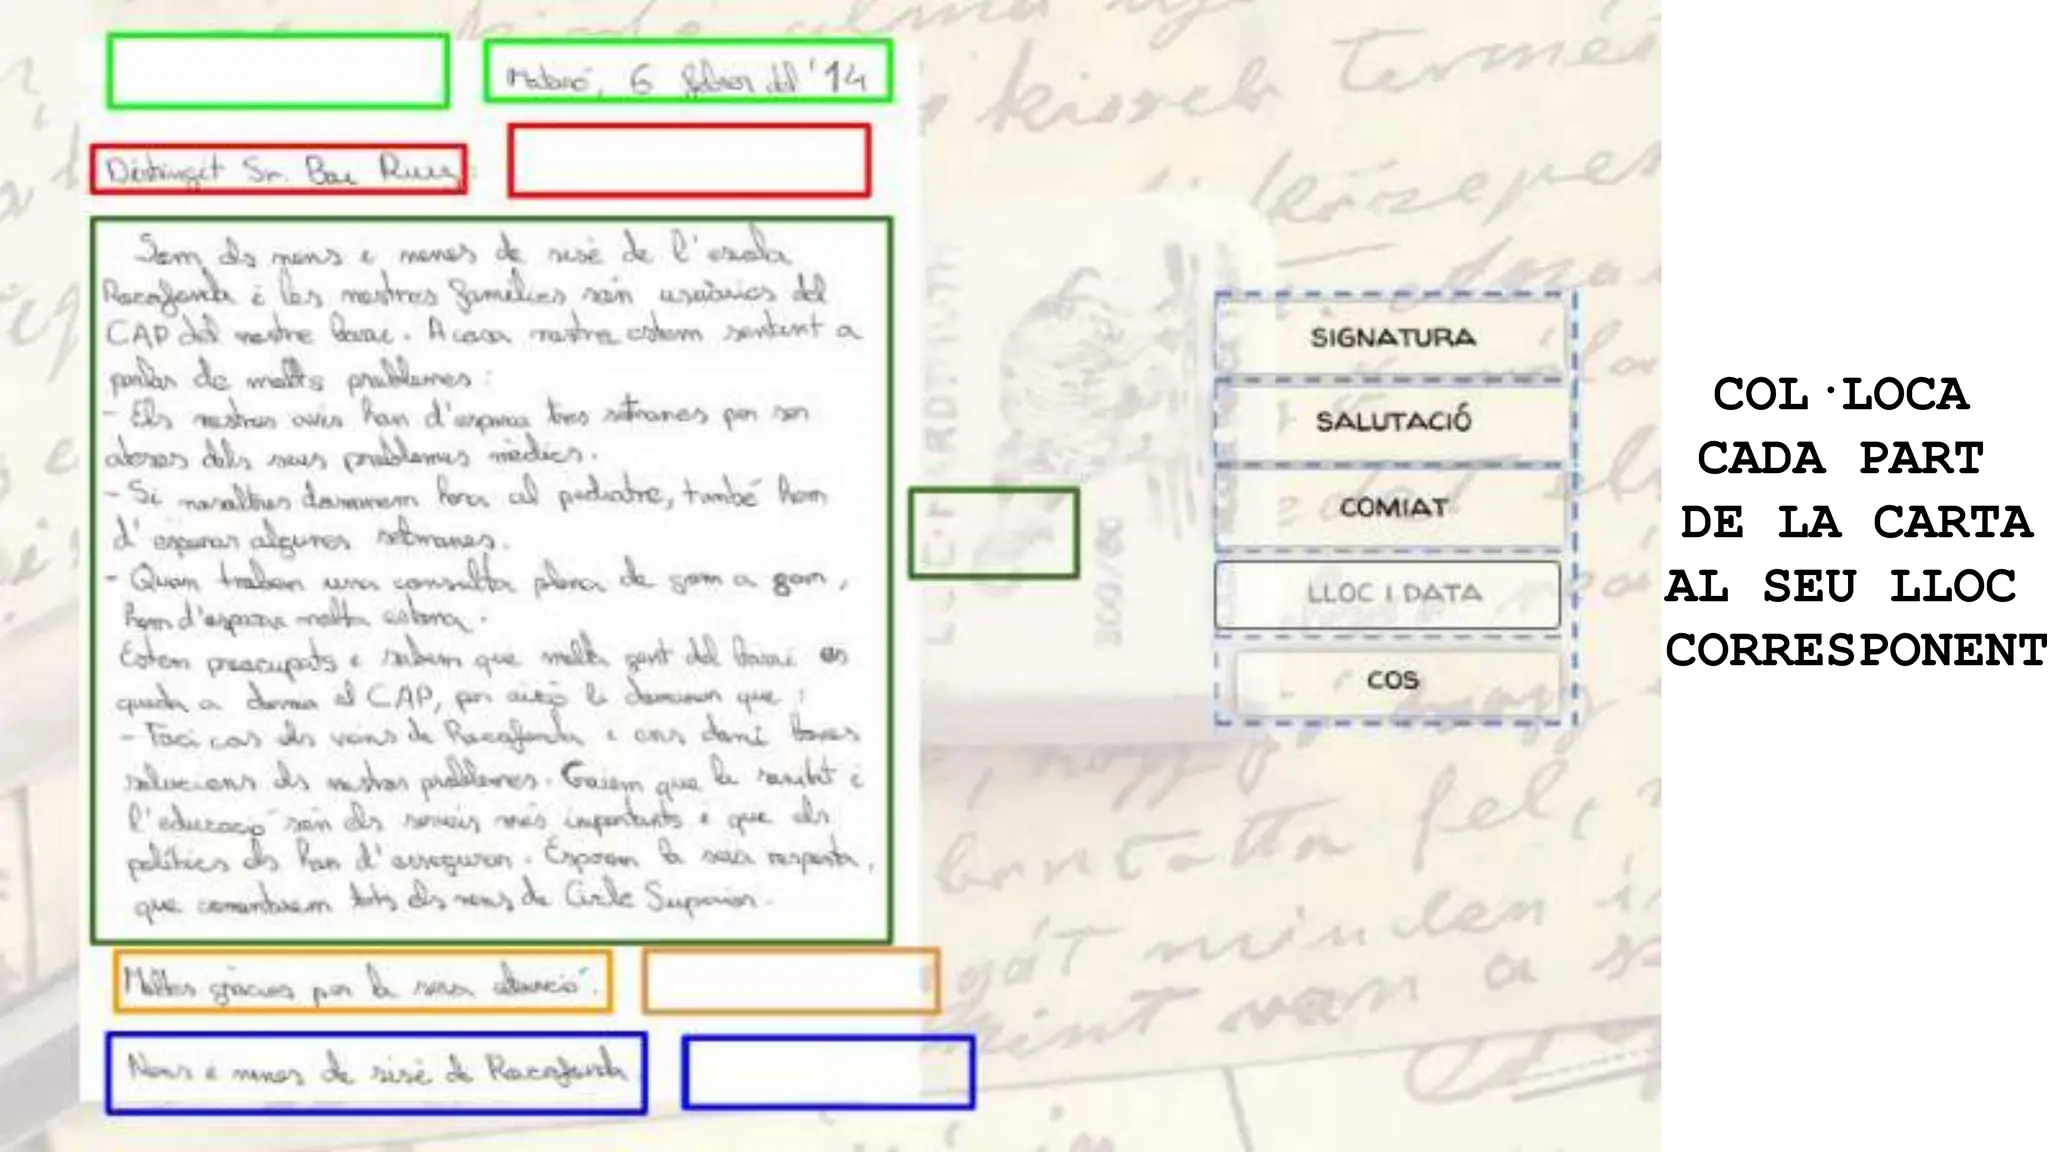 Mataró, 6 febrer del '14
Distingit Sr. Bou Ruiz:
Som els nens i nenes de sisè de l'escola
Rocafonda i les nostres famílies són usuàries del
CAP del nostre barri. A casa nostra estem sentint a
parlar de molts problemes:
- Els nostres avis han d'esperar tres setmanes per ser
atesos dels seus problemes mèdics.
- Si nosaltres demanem hora al pediatre, també hem
d'esperar algunes setmanes.
- Quan trobem una consulta plena de gom a gom,
hem d'esperar molta estona.
Estem preocupats i sabem que molta gent del barri es
queda a dormir al CAP, per això li demanem que:
- Faci cas als veins de Rocafonda i ens doni bones
solucions als nostres problemes. Creiem que la sanitat i
l'educació són els serveis més importants i que els
polítics els han d'assegurar. Esperem la seva resposta,
que comentarem tots els nens de Cicle Superior.
Moltes gràcies per la seva atenció.
Nens i nenes de sisè de Rocafonda.
SIGNATURA
SALUTACIÓ
COMIAT
LLOC I DATA
COS
COL·LOCA
CADA PART
DE LA CARTA
AL SEU LLOC
CORRESPONENT